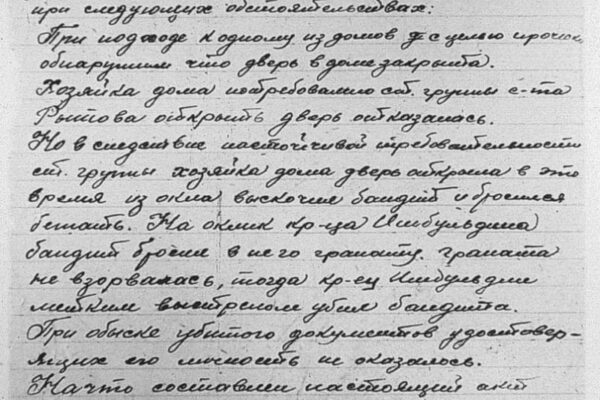 при следующих обстоятельствах:
При подходе к одному из домов с целью прочек.
обнаружили что дверь в доме закрыта.
Хозяйка дома по требованию ст. группы с-та
Рытова открыть дверь отказалась.
Но в следствие настойчивой требовательности
ст. группы хозяйка дома дверь открыла в это
время из окна выскочил бандит и бросился
бежать. На оклик кр-ца Ишбульдина
бандит бросил в него гранату. граната
не взорвалась, тогда кр-ец Ишбульдин
метким выстрелом убил бандита.
При обыске убитого документов удостовер-
ящих его личность не оказалось.
На что составлен настоящий акт